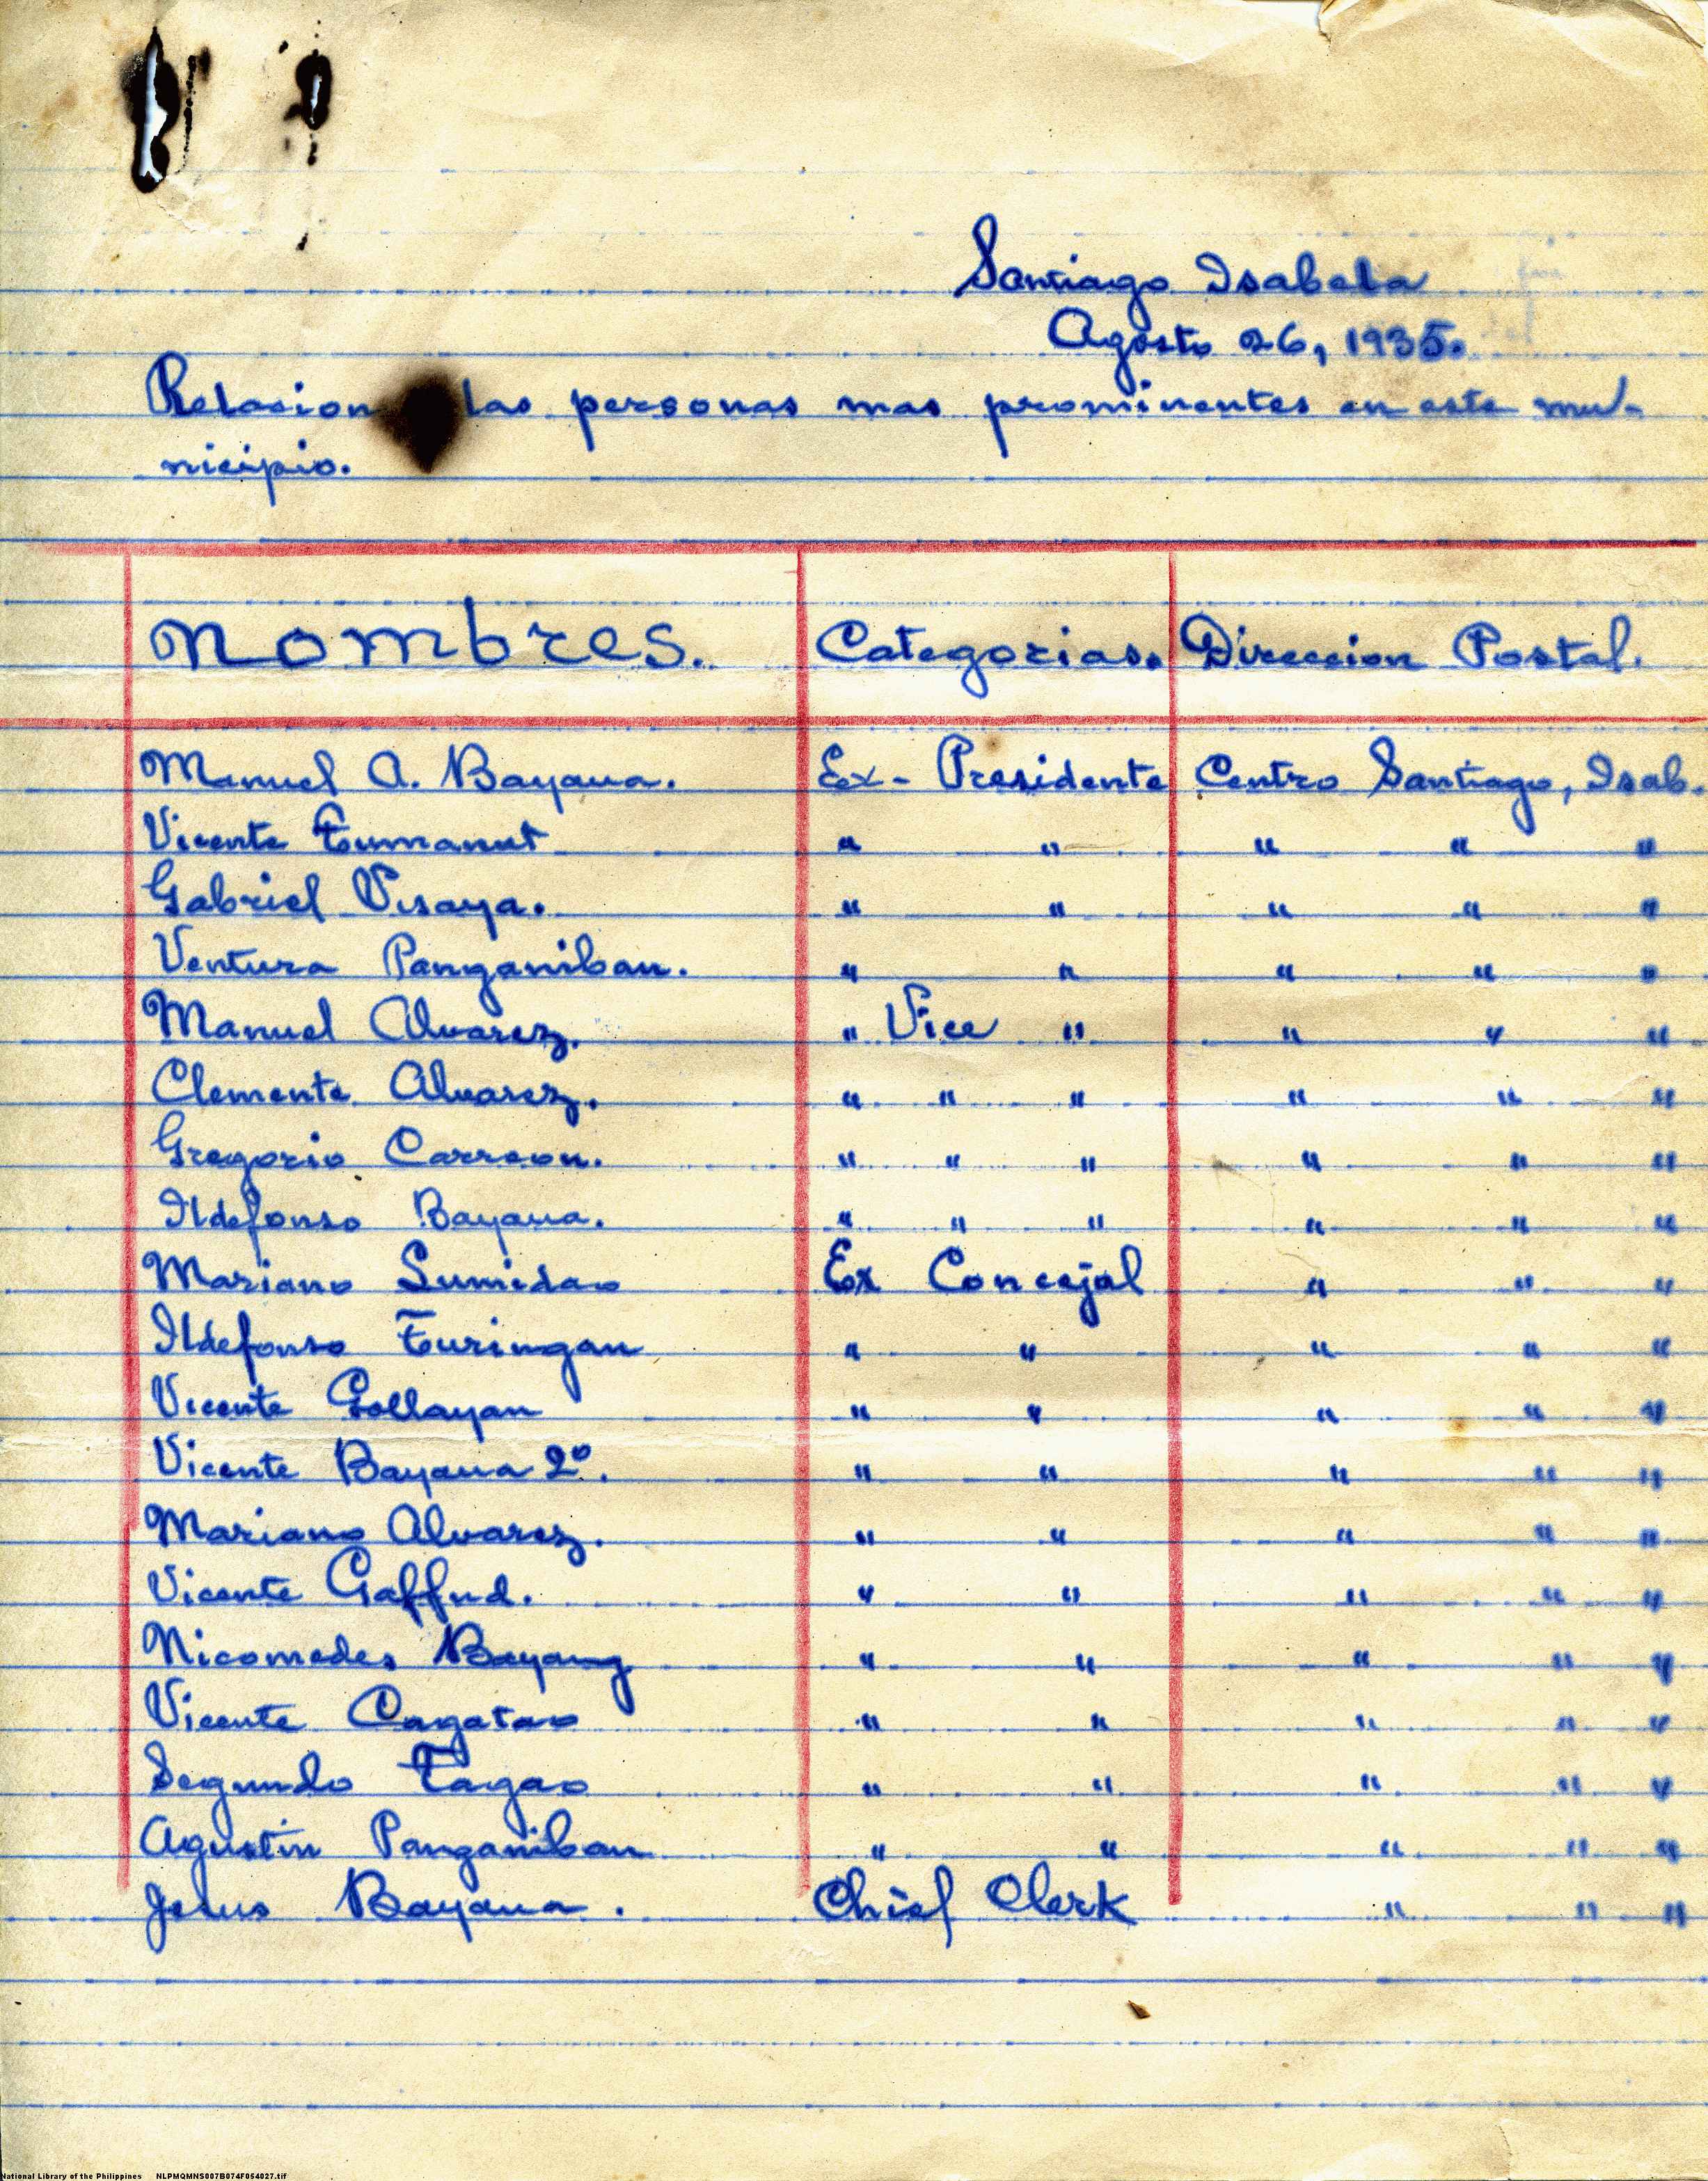 Santiago Isabela
Agosto 26, 1935.
Relacion las personas mas prominentes en este mu-
nicipio.
Nombres. Categorias. Direccion Postal.
Manuel A. Bayaua. Ex- Presidente Centro Santiago, Isab.
Vicente Tumanut " " " " "
Gabriel Visaya. " " " " "
Ventura Panganiban. " " " " "
Manuel Alvarez. " Vice " " " "
Clemente Alvarez. " " " " " "
Gregorio Carreon. " " " " " "
Ildefonso Bayaua. " " " " " "
Mariano Lumidao Ex Concejal " " "
Ildefonso Turingan " " " " "
Vicente Gollayan " " " " "
Vicente Bayaua 2º. " " " " "
Mariano Alvarez. " " " " "
Vicente Gaffud. " " " " "
Nicomedes Bayang " " " " "
Vicente Cagatao " " " " "
Segundo Tagao " " " " "
Agustin Panganiban " " " " "
Jesus Bayaua. Chief Clerk " " "
National Library of the Philippines NLPMQMNS007B074F054027.tif